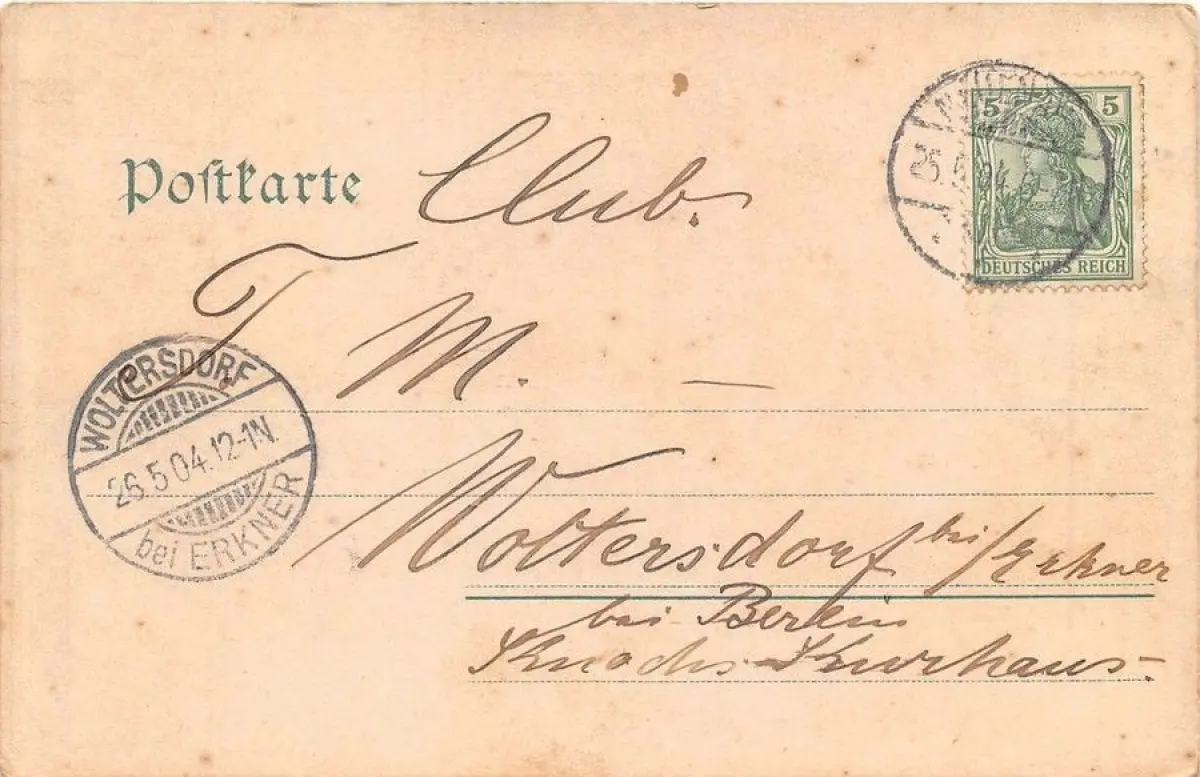 Postkarte
Club.
T. M. —
Woltersdorf bei/Erkner
bei Berein
Knochs-Kurhaus.
5 5
25.5.04
DEUTSCHES REICH
WOLTERSDORF
26.5.04.12-1N.
bei ERKNER